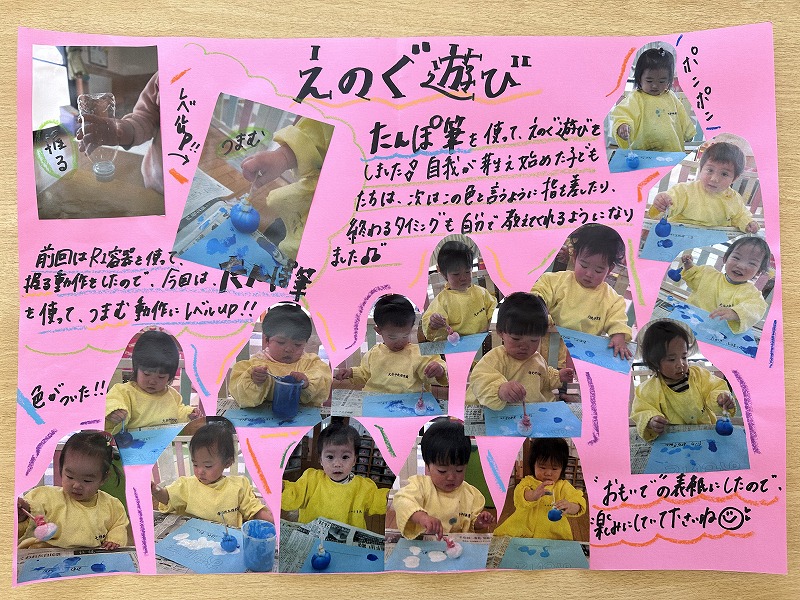 えのぐ遊び
握る
レベルUP!!
つまむ
たんぽ筆を使って、えのぐ遊びを
しました♪ 自我が芽生え始めた子ども
たちは、次はこの色と言うように指を差したり、
終わるタイミングも自分で教えてくれるようになり
ました♪
ポンポン
前回はR1容器を使って、
握る動作をしたので、今回は、たんぽ筆
を使って、つまむ動作にレベルUP!!
色がついた!!
"おもいで"の表紙にしたので、
楽しみにしていて下さいね